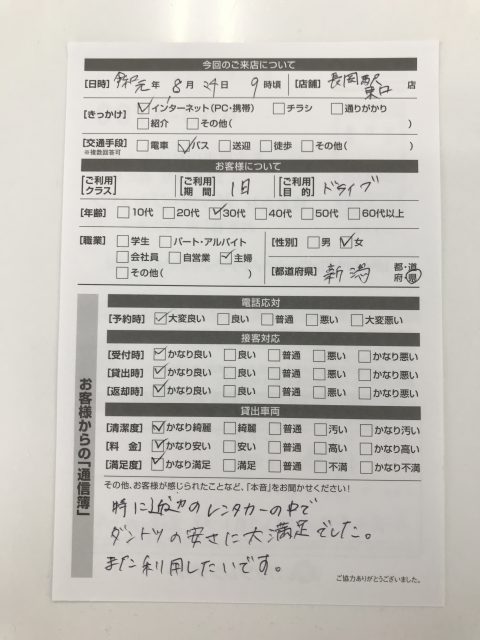 今回のご来店について
[日時] 令和元年 8月 24日 9時頃 [店舗] 長岡駅東口 店
[きっかけ] インターネット(PC・携帯) チラシ 通りがかり
紹介 その他( )
[交通手段] 電車 バス 送迎 徒歩 その他( )
※複数回答可
お客様について
[ご利用クラス] [ご利用期間] 1日 [ご利用目的] ドライブ
[年齢] 10代 20代 30代 40代 50代 60代以上
[職業] 学生 パート・アルバイト [性別] 男 女
会社員 自営業 主婦
その他( ) [都道府県] 新潟 都・道府・県
お客様からの「通信簿」
電話応対
[予約時] 大変良い 良い 普通 悪い 大変悪い
接客対応
[受付時] かなり良い 良い 普通 悪い かなり悪い
[貸出時] かなり良い 良い 普通 悪い かなり悪い
[返却時] かなり良い 良い 普通 悪い かなり悪い
貸出車両
[清潔度] かなり綺麗 綺麗 普通 汚い かなり汚い
[料 金] かなり安い 安い 普通 高い かなり高い
[満足度] かなり満足 満足 普通 不満 かなり不満
その他、お客様が感じられたことなど、「本音」をお聞かせください!
特に近辺のレンタカーの中で
ダントツの安さに大満足でした。
また利用したいです。
ご協力ありがとうございました。